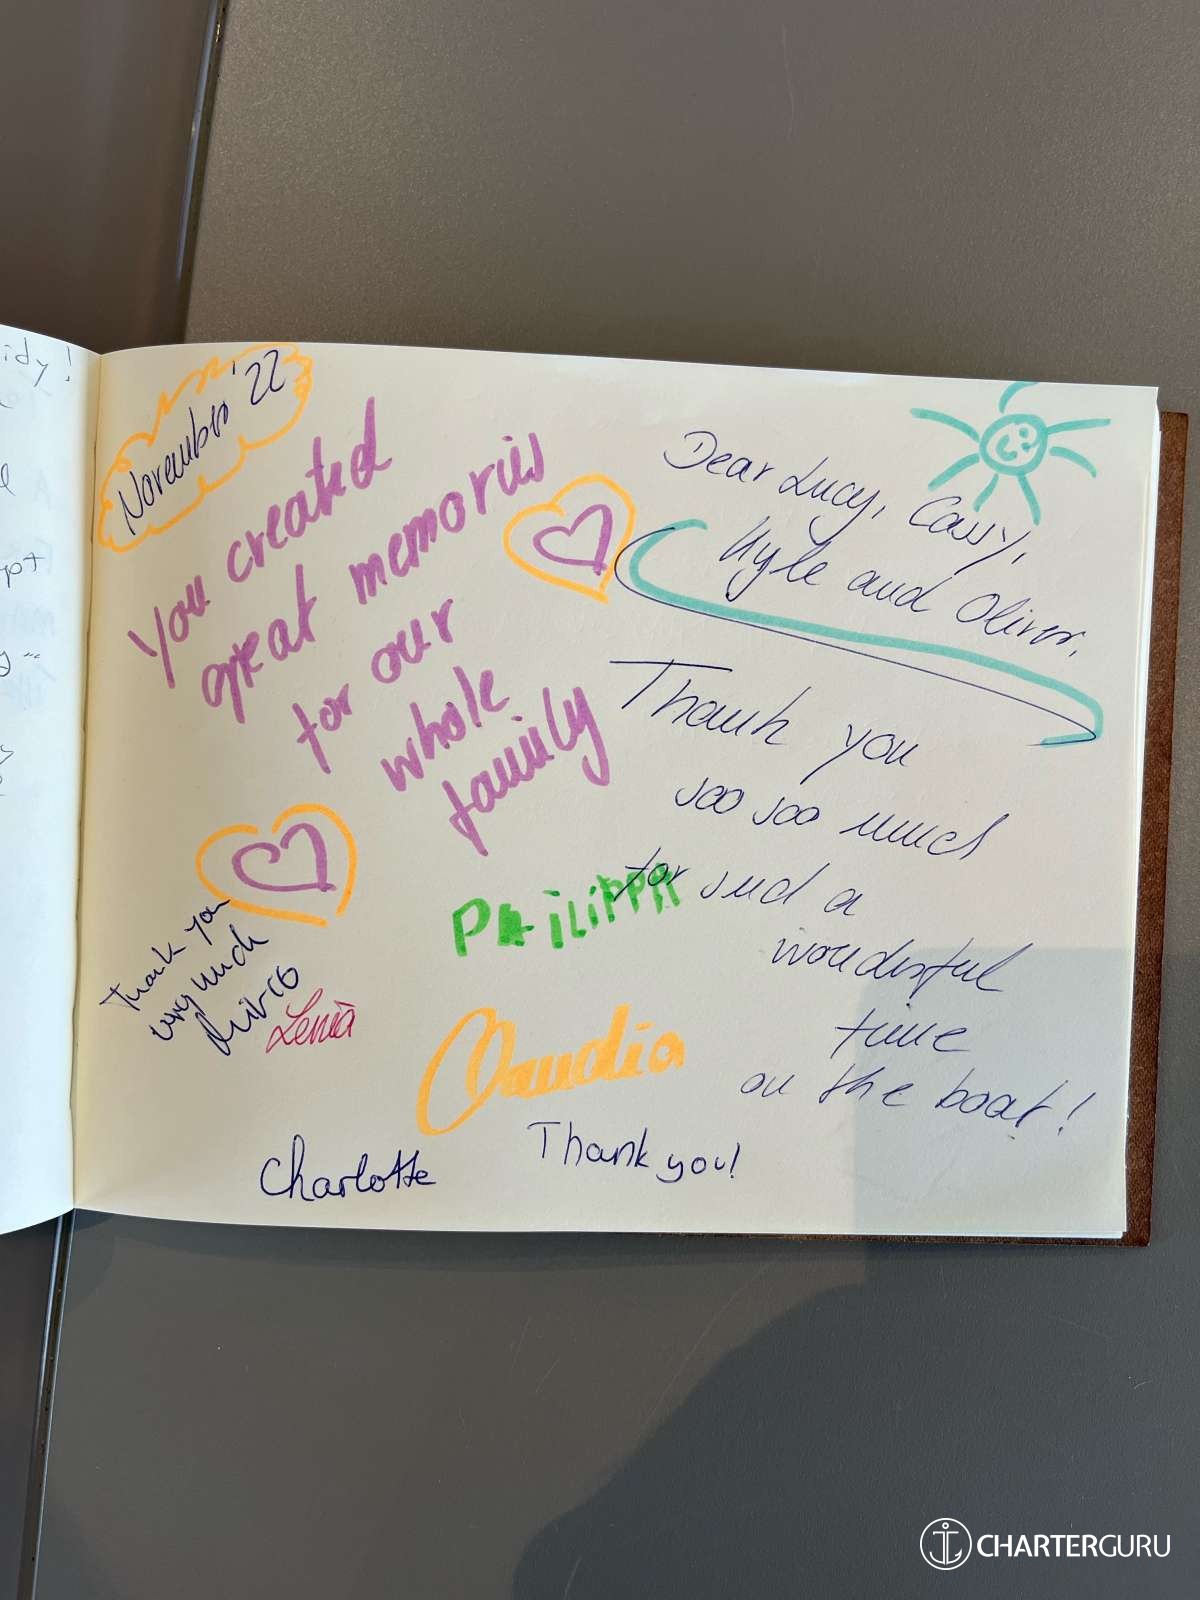 November '22
You created
great memories
for our
whole
family
Dear Lucy, Cassy,
Kyle and Oliver,
Thank you
soo soo much
for such a
wonderful
time
on the boat!
PHILIPPA
Thank you
very much
Lenia
Claudia
Thank you!
Charlotte
idy!
CHARTERGURU